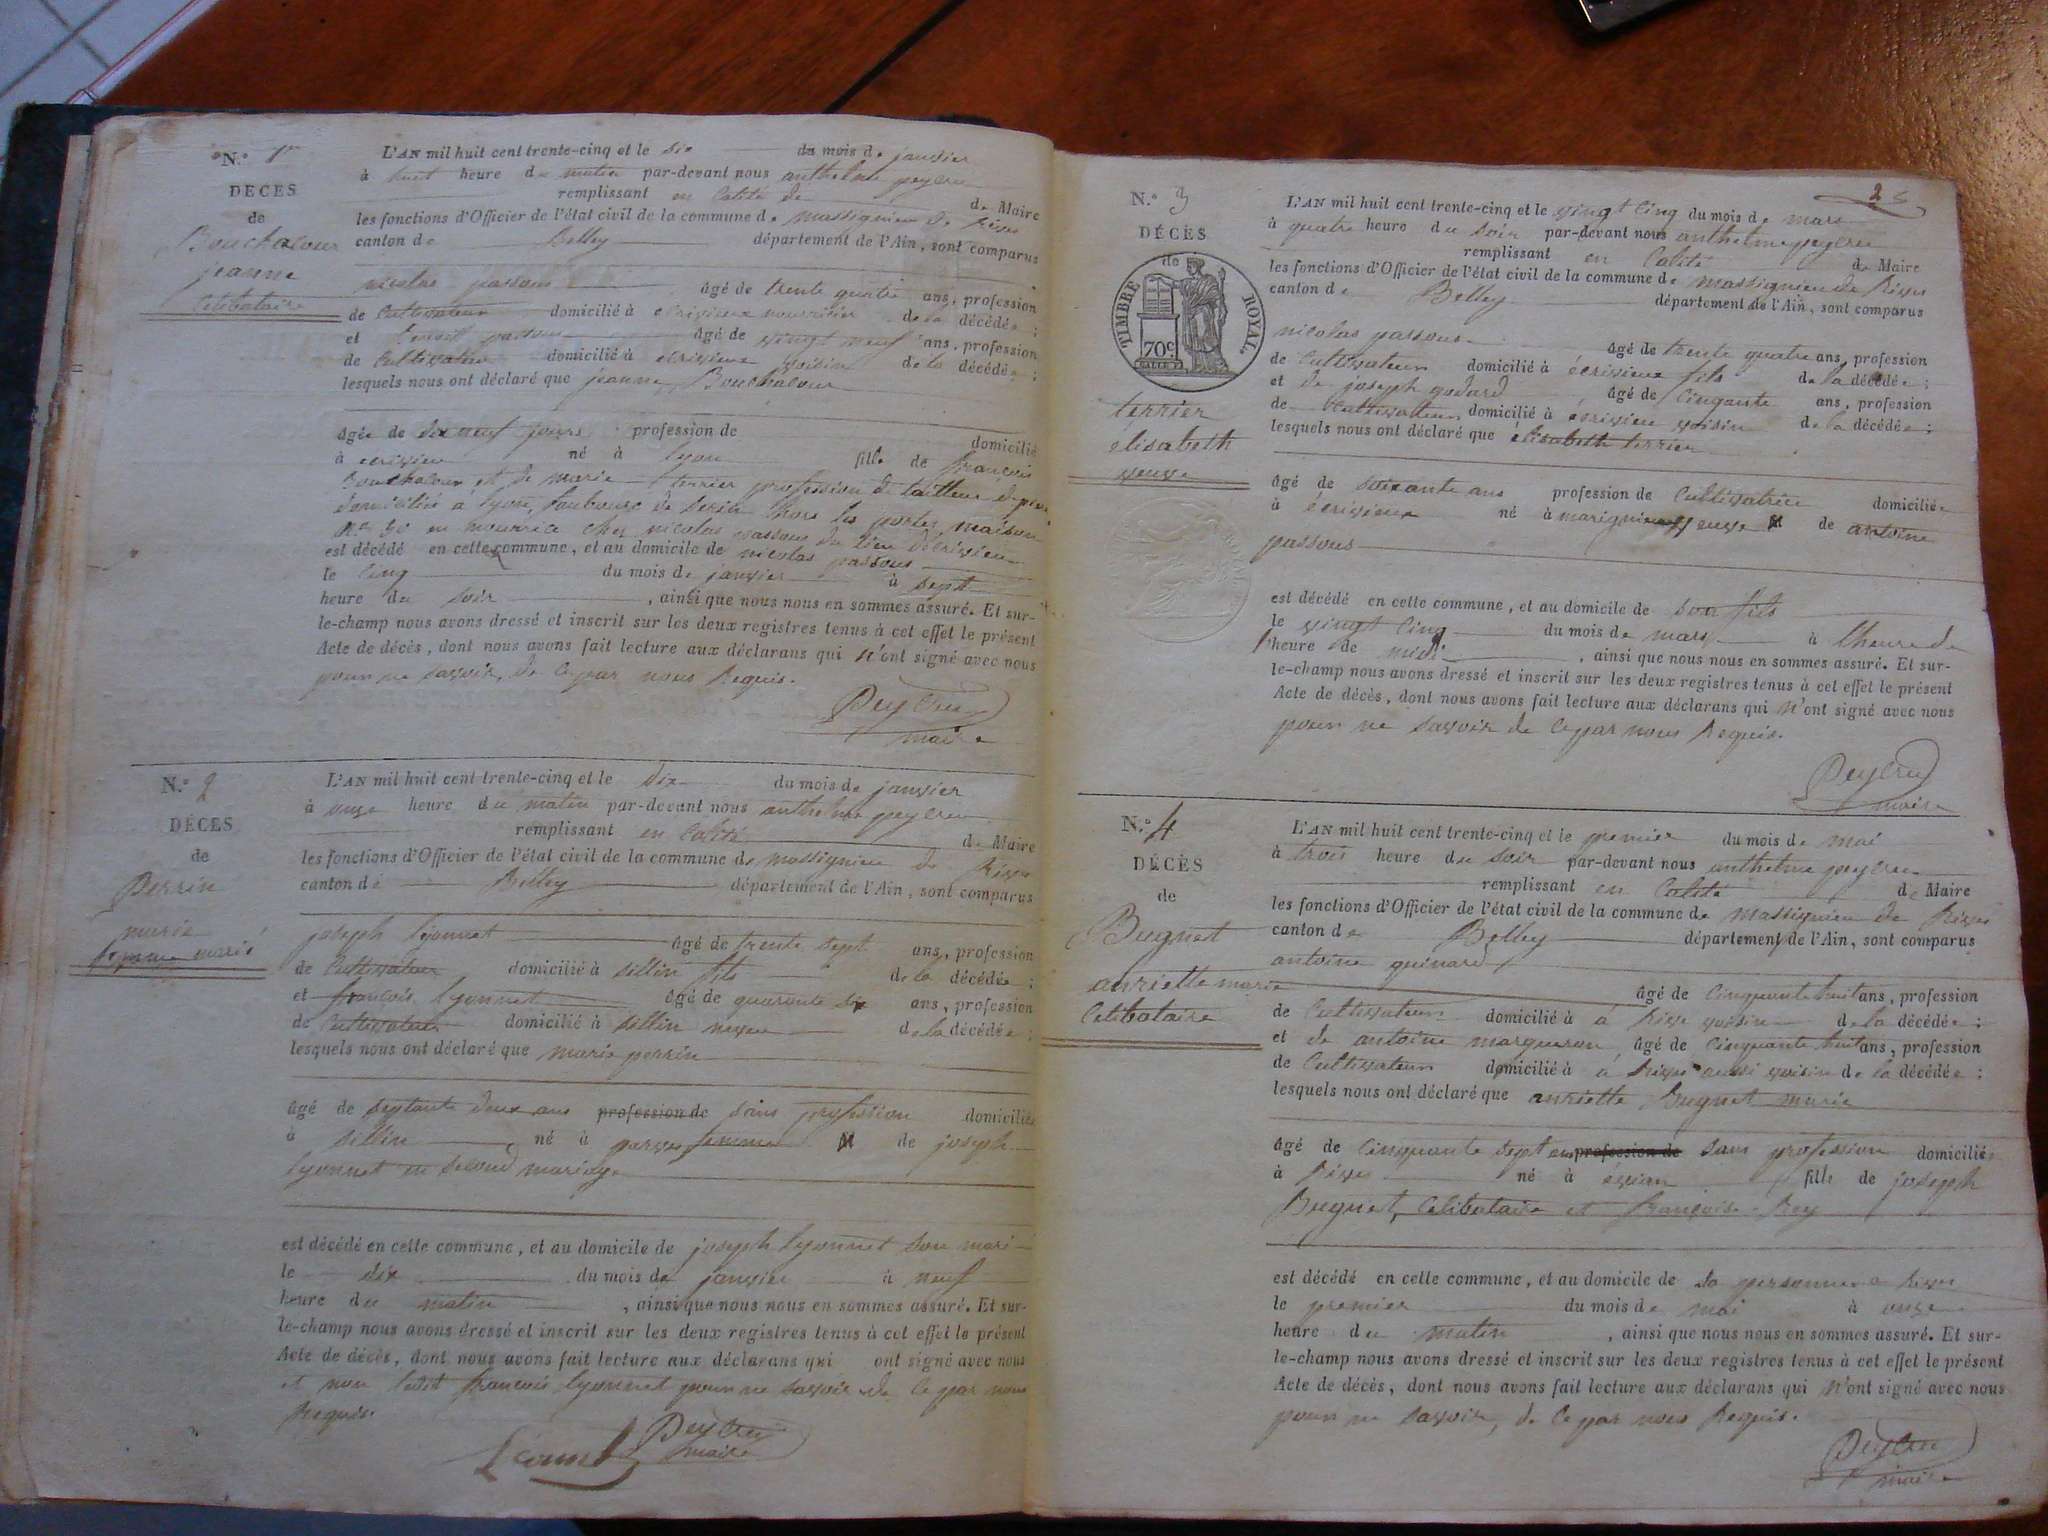 N.° 1er
DÉCÈS
de
Bouchacour
jeanne
Celibataire
L'AN mil huit cent trente-cinq et le six du mois de janvier
à huit heure du matin par-devant nous anthelme peycru
remplissant en Calité de de Maire
les fonctions d'Officier de l'état civil de la commune de massignieu de Rives
canton de Belley département de l'Ain, sont comparus
nicolas passous âgé de trente quatre ans, profession
de Cultivateur domicilié à écrivieux nourricier de la décédée ;
et benoit passous âgé de vingt neuf ans, profession
de Cultivateur domicilié à écrivieux voisin de la décédée ;
lesquels nous ont déclaré que jeanne Bouchacour
âgée de dix neuf jours profession de domicilié
à ecrivieu né à lyon fille de françois
Bouchacour et de marie terrier profession de tailleur de pierre
domiciliés à lyon, faubourg de hors les portes, maison
en nourrice chez nicolas passous du lieu d'écrivieu
est décédé en cette commune, et au domicile de nicolas passous
le cinq du mois de janvier à sept
heure du soir, ainsi que nous nous en sommes assuré. Et sur-
le-champ nous avons dressé et inscrit sur les deux registres tenus à cet effet le présent
Acte de décès, dont nous avons fait lecture aux déclarans qui n'ont signé avec nous
pour ne savoir, de ce par nous Requis.
Peycru
maire
N.° 2
DÉCÈS
de
Perrin
marie
femme marié
L'AN mil huit cent trente-cinq et le dix du mois de janvier
à onze heure du matin par-devant nous anthelme peycru
remplissant en Calité de Maire
les fonctions d'Officier de l'état civil de la commune de massignieu de Rives
canton de Belley département de l'Ain, sont comparus
joseph lyonnet âgé de trente sept ans, profession
de Cultivateur domicilié à sillin fils de la décédée ;
et françois lyonnet âgé de quarante six ans, profession
de Cultivateur domicilié à sillin neveu de la décédée ;
lesquels nous ont déclaré que marie perrin
âgé de septante deux ans profession de sans profession domicilié
à sillin né à parves femme de joseph
lyonnet en second mariage
est décédé en cette commune, et au domicile de joseph lyonnet son mari
le dix du mois de janvier à neuf
heure du matin, ainsi que nous nous en sommes assuré. Et sur-
le-champ nous avons dressé et inscrit sur les deux registres tenus à cet effet le présent
Acte de décès, dont nous avons fait lecture aux déclarans qui ont signé avec nous
et non ledit françois lyonnet pour ne savoir de ce par nous
Requis.
Peycru
maire
N.° 3
DÉCÈS
de
TIMBRE ROYAL.
70c
terrier
élisabeth
veuve
L'AN mil huit cent trente-cinq et le vingt cinq du mois de mars
à quatre heure du soir par-devant nous anthelme peycru
remplissant en Calité de Maire
les fonctions d'Officier de l'état civil de la commune de massignieu de Rives
canton de Belley département de l'Ain, sont comparus
nicolas passous âgé de trente quatre ans, profession
de Cultivateur domicilié à écrivieux fils de la décédée ;
et de joseph godard âgé de Cinquante ans, profession
de Cultivateur domicilié à écrivieu voisin de la décédée ;
lesquels nous ont déclaré que élisabeth terrier
âgé de soixante ans profession de Cultivatrice domicilié
à écrivieux né à marignieu veuve de antoine
passous
est décédé en cette commune, et au domicile de son fils
le vingt Cinq du mois de mars à l'heure de
heure de midi, ainsi que nous nous en sommes assuré. Et sur-
le-champ nous avons dressé et inscrit sur les deux registres tenus à cet effet le présent
Acte de décès, dont nous avons fait lecture aux déclarans qui n'ont signé avec nous
pour ne savoir de ce par nous Requis.
Peycru
maire
N.° 4
DÉCÈS
de
Bugnet
anriette marie
Celibataire
L'AN mil huit cent trente-cinq et le premier du mois de mai
à trois heure du soir par-devant nous anthelme peycru
remplissant en Calité de Maire
les fonctions d'Officier de l'état civil de la commune de massignieu de Rives
canton de Belley département de l'Ain, sont comparus
antoine guinard
âgé de Cinquante huit ans, profession
de Cultivateur domicilié à à Rives voisin de la décédée ;
et de antoine marqueron âgé de Cinquante huit ans, profession
de Cultivateur domicilié à à Rives aussi voisin de la décédée ;
lesquels nous ont déclaré que anriette Bugnet marie
âgé de Cinquante sept ans profession de sans profession domicilié
à Rives né à évian fille de joseph
Bugnet, Celibataire et françoise Rey
est décédé en cette commune, et au domicile de sa personne a Rives
le premier du mois de mai à onze
heure du matin, ainsi que nous nous en sommes assuré. Et sur-
le-champ nous avons dressé et inscrit sur les deux registres tenus à cet effet le présent
Acte de décès, dont nous avons fait lecture aux déclarans qui n'ont signé avec nous
pour ne savoir, de ce par nous Requis.
Peycru
maire